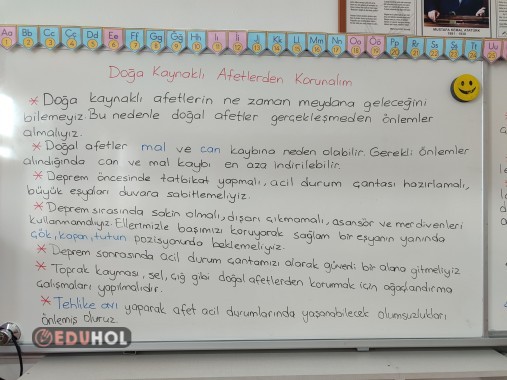 Aa Bb Cc Çç Dd Ee Ff Gg Ğğ Hh Iı İi Jj Kk Ll Mm Nn Oo Öö Pp Rr Ss Şş Tt Uu
1 2 3 4 5 6 7 8 9 10 11 12 13 14 15 16 17 18 19 20 21 22 23 24 25
MUSTAFA KEMAL ATATÜRK
Doğa Kaynaklı Afetlerden Korunalım
* Doğa kaynaklı afetlerin ne zaman meydana geleceğini
bilemeyiz. Bu nedenle doğal afetler gerçekleşmeden önlemler
almalıyız.
* Doğal afetler mal ve can kaybına neden olabilir. Gerekli önlemler
alındığında can ve mal kaybı en aza indirilebilir.
* Deprem öncesinde tatbikat yapmalı, acil durum çantası hazırlamalı,
büyük eşyaları duvara sabitlemeliyiz.
* Deprem sırasında sakin olmalı, dışarı çıkmamalı, asansör ve merdivenleri
kullanmamalıyız. Ellerimizle başımızı koruyarak sağlam bir eşyanın yanında
çök, kapan, tutun pozisyonunda beklemeliyiz.
* Deprem sonrasında acil durum çantamızı alarak güvenli bir alana gitmeliyiz
* Toprak kayması, sel, çığ gibi doğal afetlerden korumak için ağaçlandırma
çalışmaları yapılmalıdır.
* Tehlike avı yaparak afet acil durumlarında yaşanabilecek olumsuzlukları
önlemiş oluruz.
EDUHOL